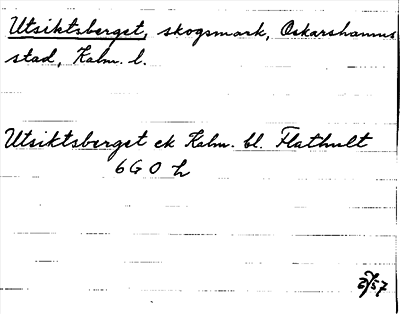 Utsiktsberget, skogsmark, Oskarshamns
stad, Kalm. l.
Utsiktsberget ek Kalm. bl. Flathult
6G 0 h